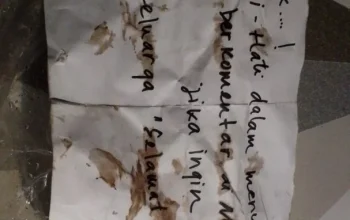 ...!
- Hati dalam men
berkomentar u M
jika ingin
eluarga "Selamat